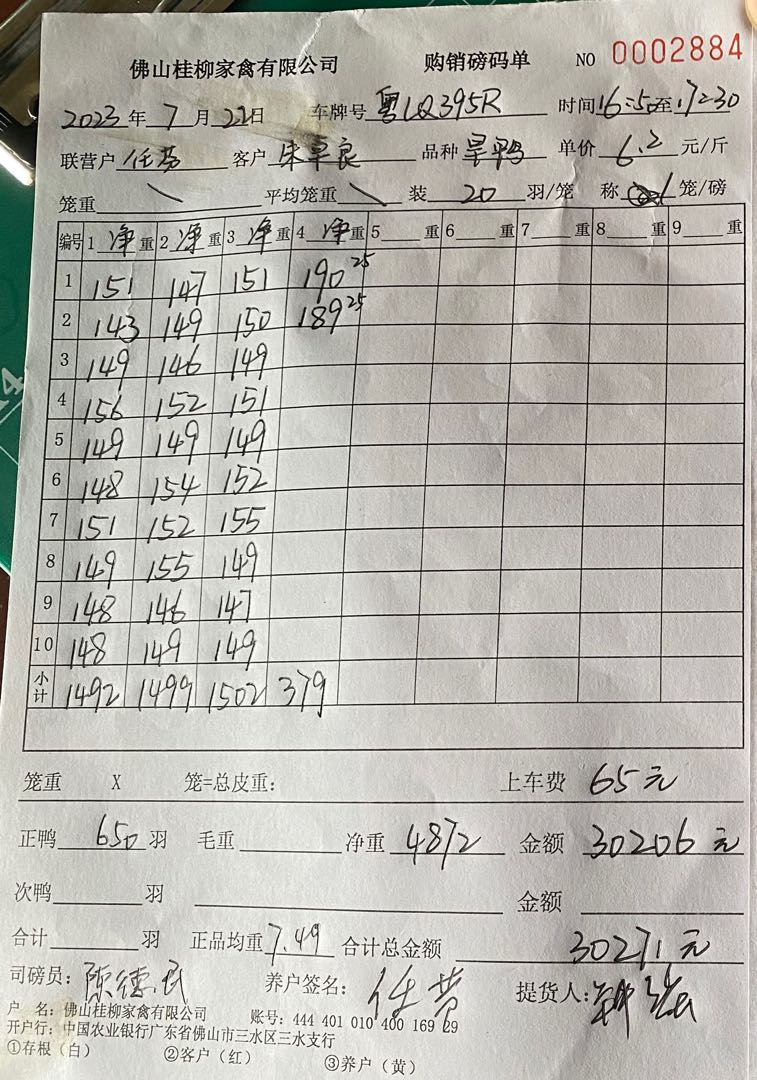 佛山桂柳家禽有限公司 购销磅码单 NO 0002884
2023年7月22日 车牌号 粤LQ395R 时间16:50至17:30
联营户 任芬 客户 朱卓良 品种 旱鸭 单价 6.2 元/斤
笼重 \ 平均笼重 \ 装 20 羽/笼 称 1 笼/磅
编号 1 净 重 2 净 重 3 净 重 4 净 重 5 重 6 重 7 重 8 重 9 重
1 151 147 151 190 25
2 143 149 150 189 25
3 149 146 149
4 156 152 151
5 149 149 149
6 148 154 152
7 151 152 155
8 149 155 149
9 148 146 147
10 148 149 149
小计 1492 1499 1502 379
笼重 X 笼=总皮重: 上车费 65元
正鸭 650 羽 毛重 净重 4872 金额 30206 元
次鸭 羽 金额
合计 羽 正品均重 7.49 合计总金额 30271元
司磅员: 陈德民 养户签名: 任芬 提货人:
户 名: 佛山桂柳家禽有限公司 账号: 444 401 010 400 169 29
开户行: 中国农业银行广东省佛山市三水区三水支行
①存根(白) ②客户(红) ③养户(黄)